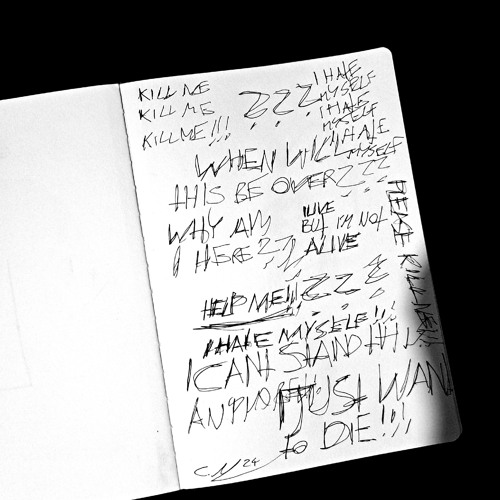 KILL ME
KILL ME
KILL ME!!!
???
I HATE
MYSELF
I HATE
MYSELF
I HATE
MYSELF
WHEN WILL
THIS BE OVER???
WHY AM
I HERE???
I LIVE
BUT I'M NOT
ALIVE
PLEASE KILL ME!!!
HELP ME!!!???
I HATE MYSELF!!!
I CAN'T STAND THIS
ANYMORE!!!
I JUST WANT
to DIE!!!
24